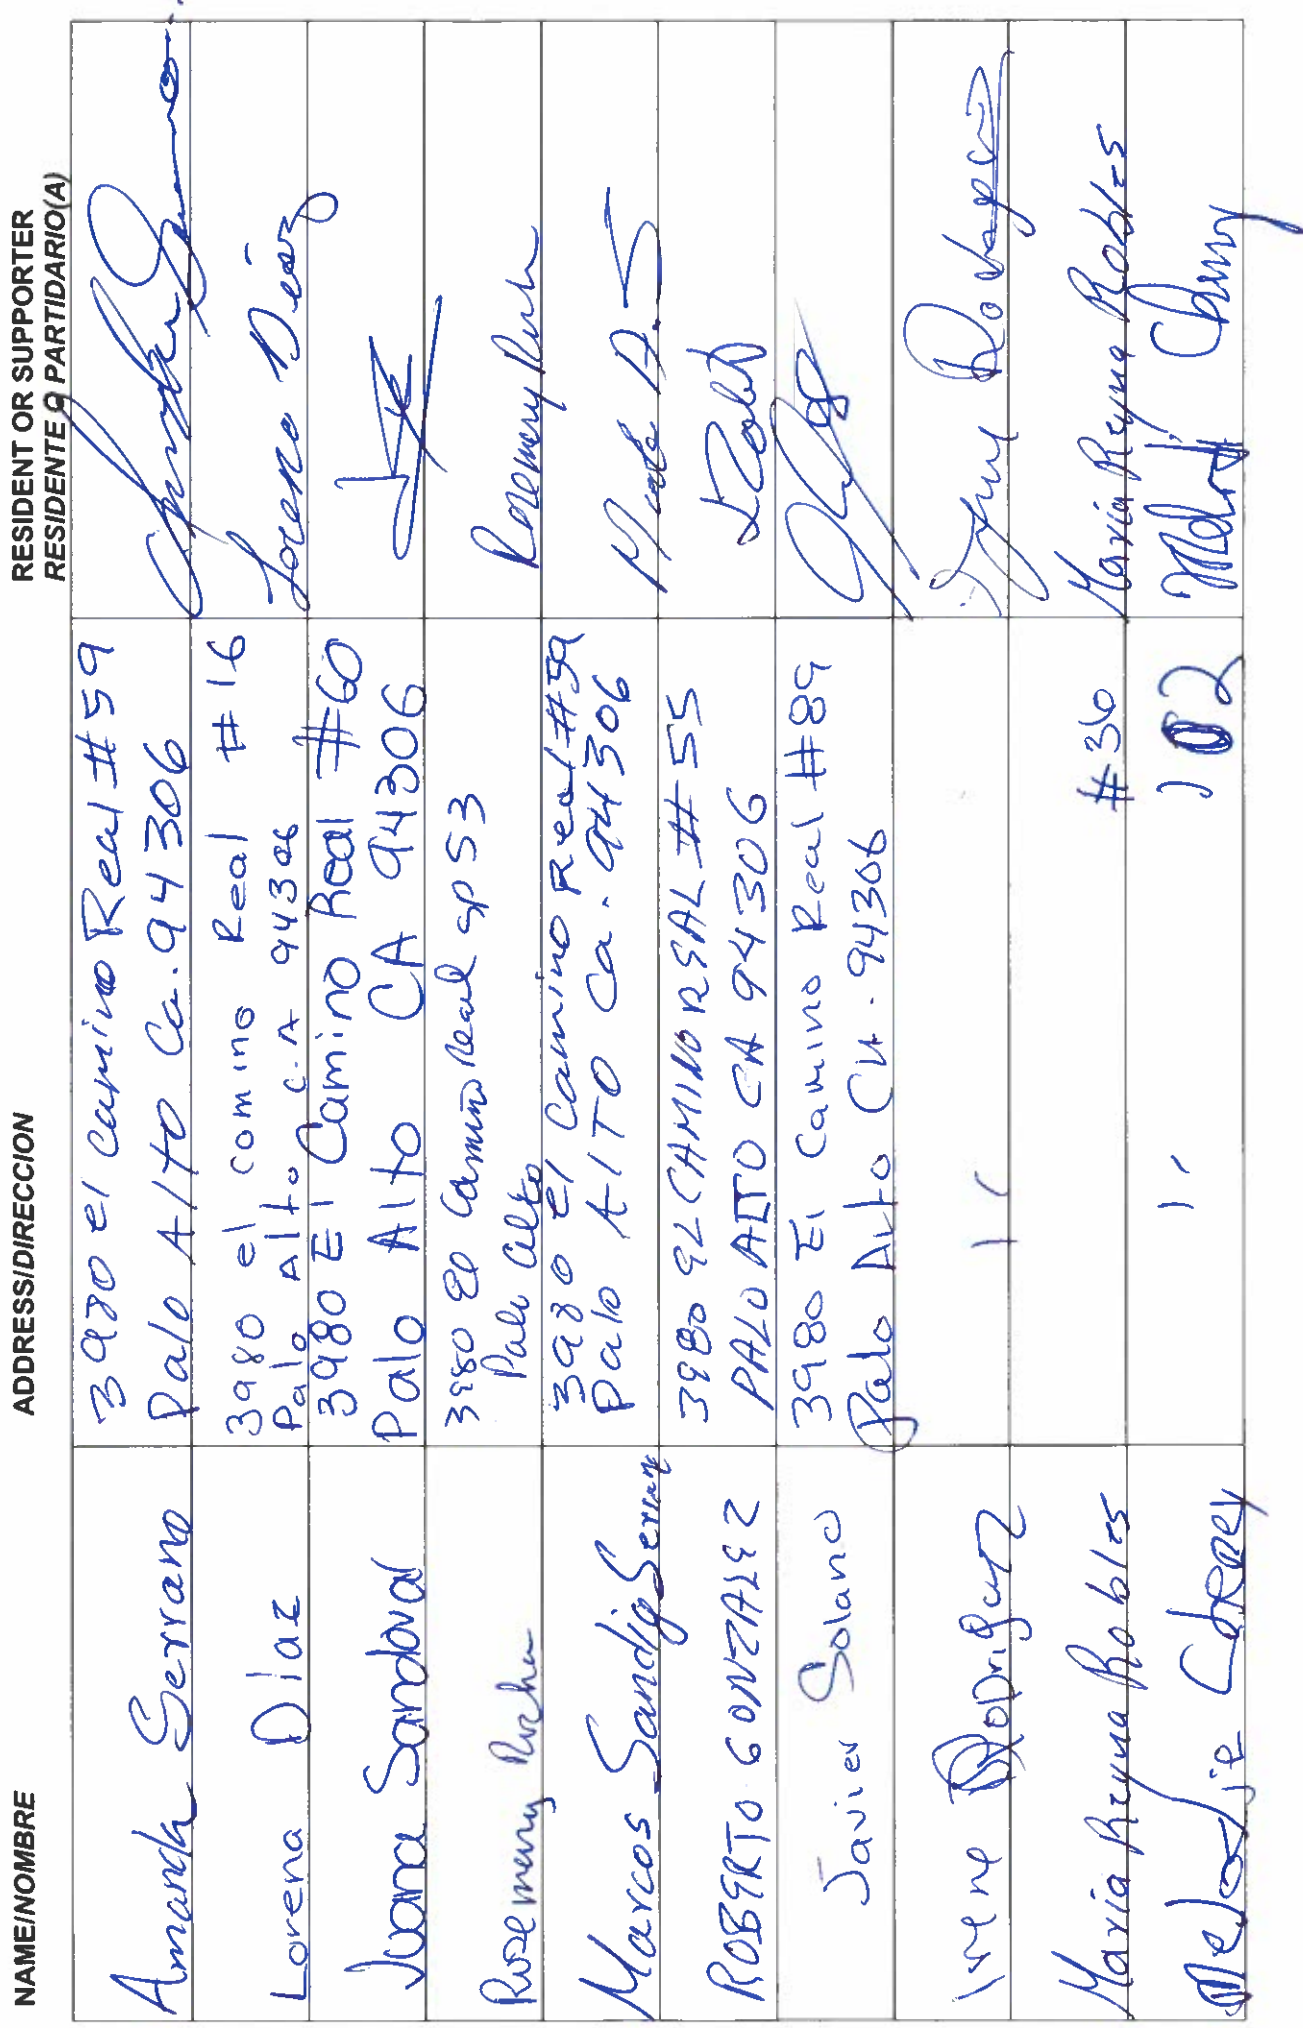 NAME/NOMBRE ADDRESS/DIRECCION RESIDENT OR SUPPORTER
RESIDENTE O PARTIDARIO(A)
Amanda Serrano 3980 el camino Real #59
Palo Alto Ca. 94306
Lorena Diaz 3980 el comino Real #16
Palo Alto C.A 94306 Lorena Diaz
Juana Sandoval 3980 El Camino Real #60
Palo Alto CA 94306
Rosemary 3980 El Camino Real sp 53
Palo Alto Rosemary
Marcos Sandig Serrano 3980 el Camino Real #59
Palo Alto Ca. 94306
ROBERTO GONZALEZ 3980 EL CAMINO REAL #55
PALO ALTO CA 94306
Javier Solano 3980 El Camino Real #89
Palo Alto CA. 94306
Irene Rodriguez
Maria Reyna Robles #36 Maria Reyna Robles
Melodie 102